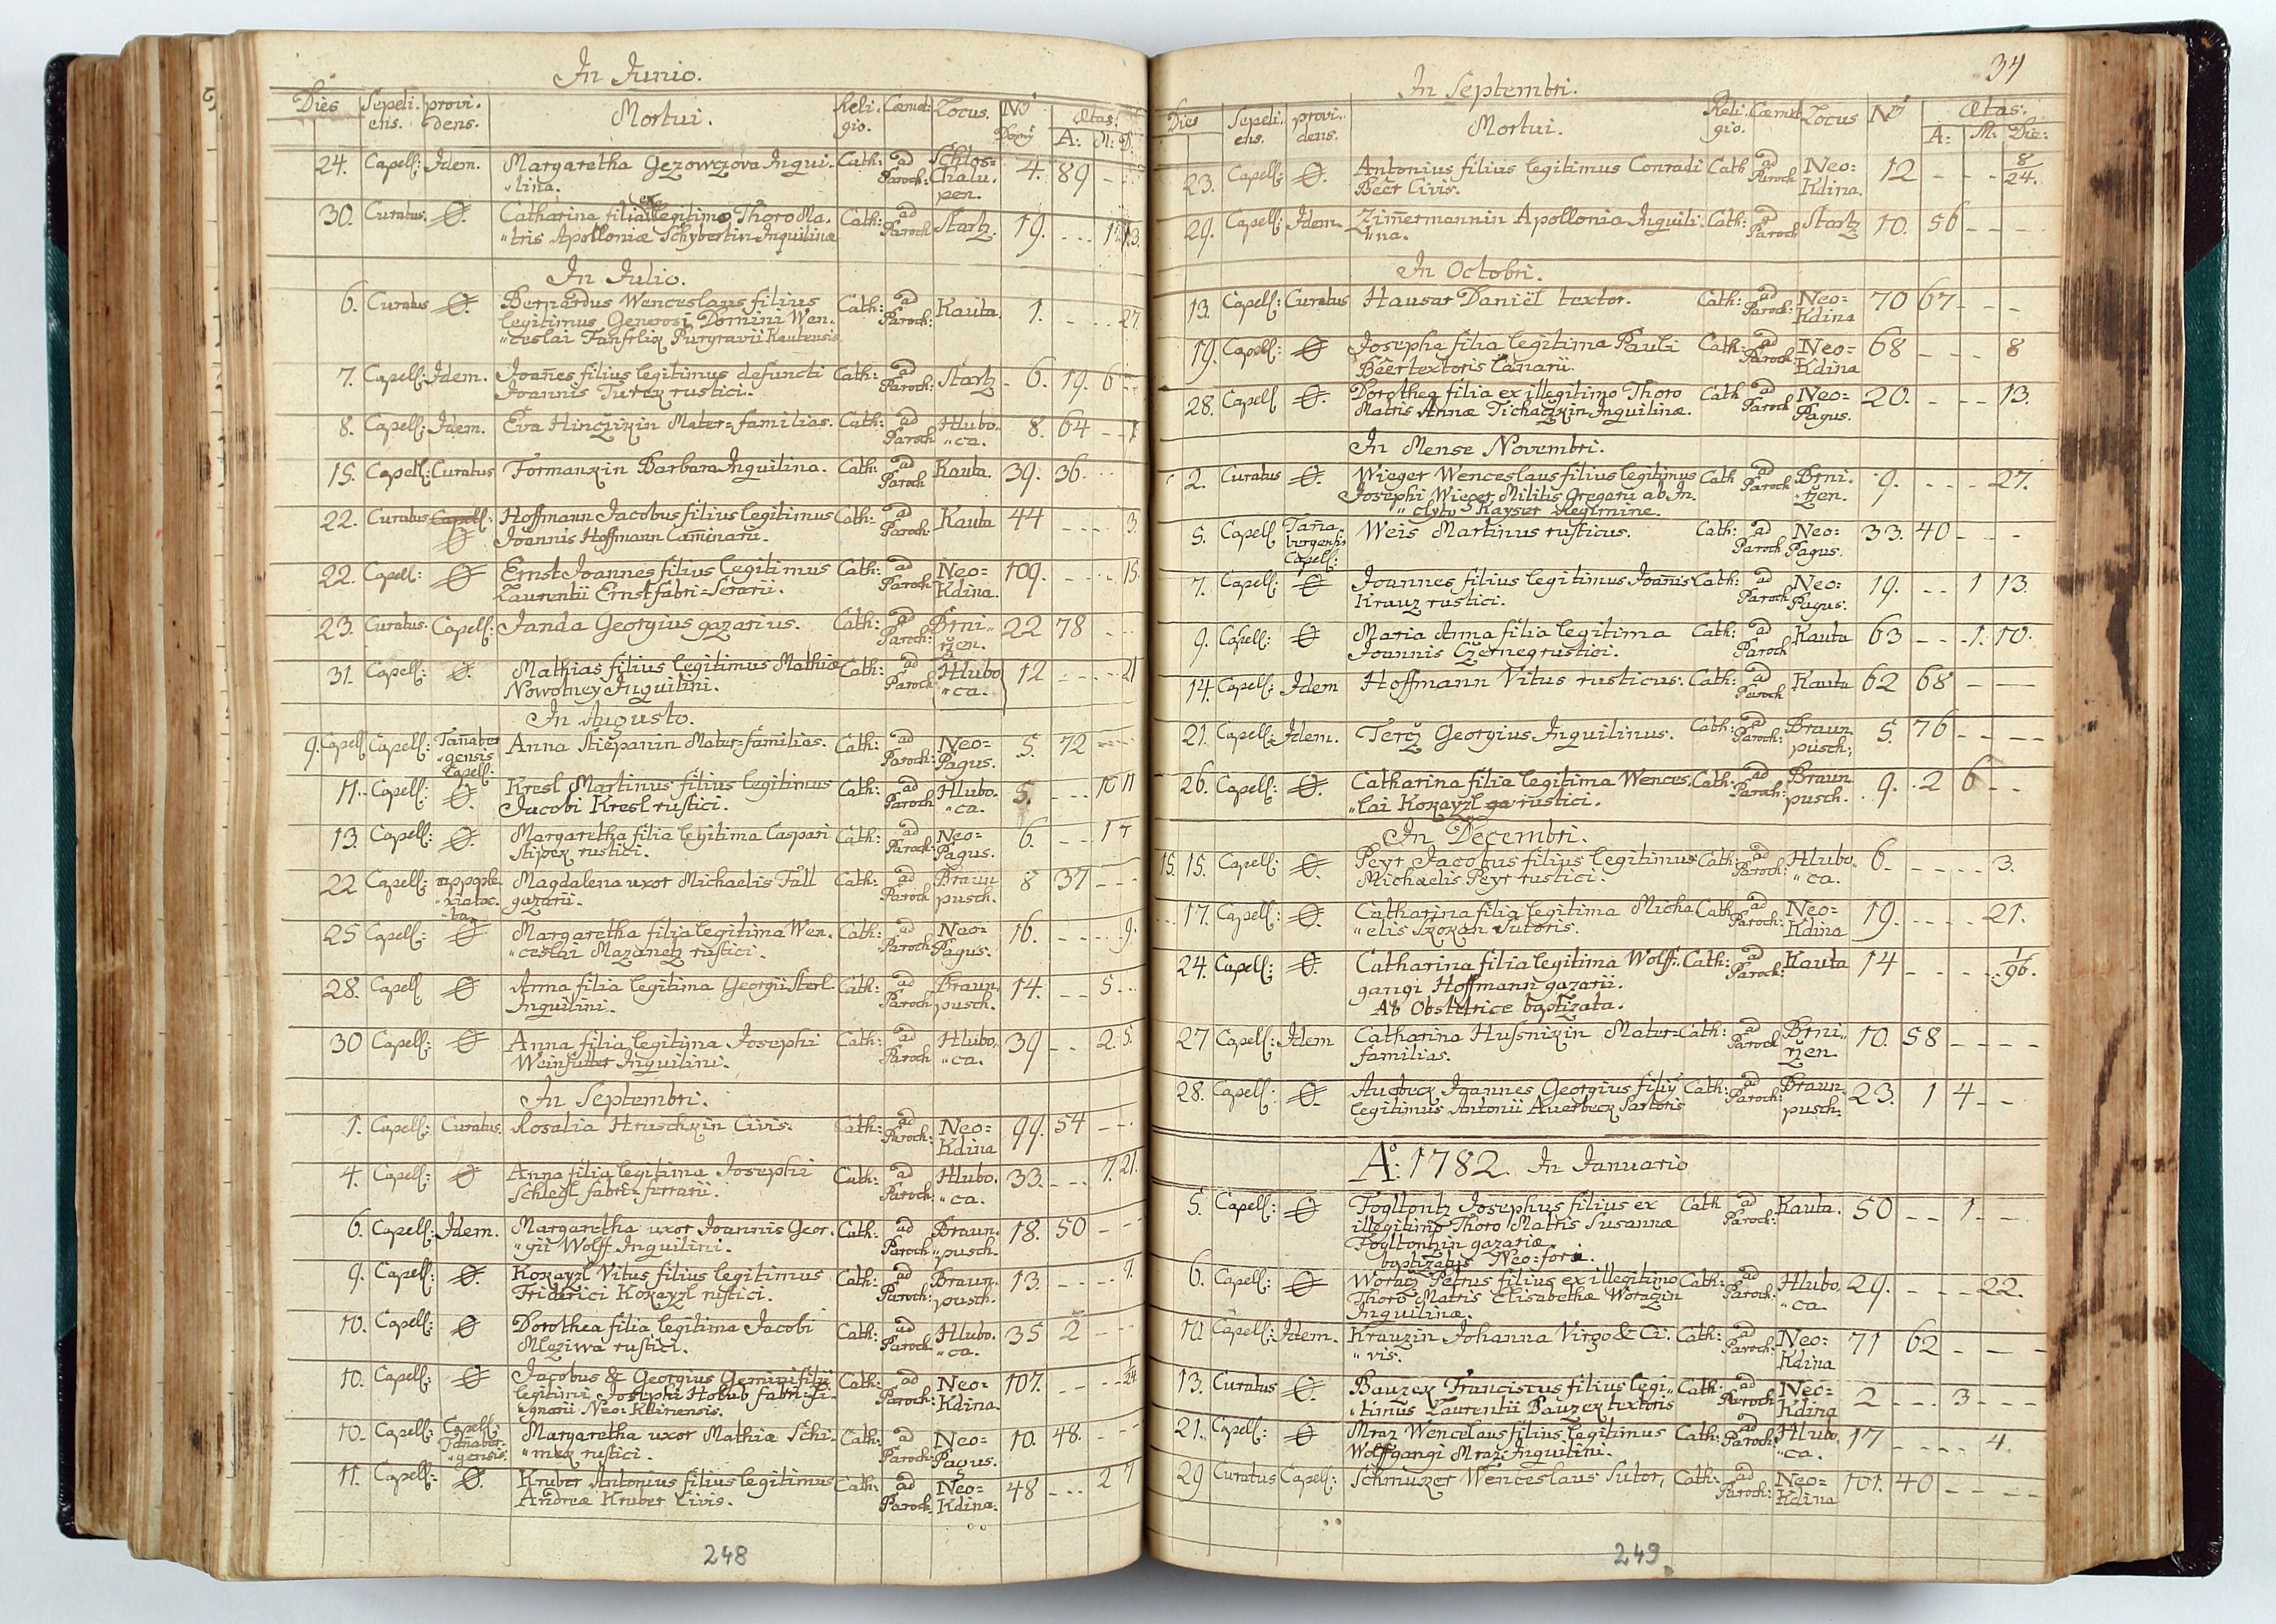 In Junio.
Dies Sepeli- ens. provi- dens. Mortui. Reli- gio. Coemet: Locus. Nō Domŷ Ætas. A: M: D:
24. Capell: Idem. Margaretha Gezowczova Inqui- Cath: ad Schlos= 4. 89 - - -
"lina. Paroch: Chalu-
pen.
30. Curatus. Ø. Catharina filia ex illegitimo Thoro Ma- Cath: ad Startz. 19. - - -
"tris Apolloniæ Schybertin Inquilinæ Paroch
In Julio.
6. Curatus Ø. Bernardus Wenceslaus filius Cath: ad Kauta. 1. - - - 27
legitimus Generosi Domini Wen- Paroch:
"ceslai Purgravii Kautensis
7. Capell: Idem. Joan̄es filius legitimus defuncti Cath: ad Startz - 6. 19. 6 -
Joannis Turek rustici. Paroch:
8. Capell: Idem. Eva Hinczikin Mater=familias. Cath: ad Hlubo- 8. 64 - -
Paroch "ca.
15. Capell: Curatus Formankin Barbara Inquilina. Cath: ad Kauta. 39. 36. - -
Paroch
22. Curatus Capell: Hoffmann Jacobus filius legitimus Cath: ad Kauta 44 - - - 3.
Ø Joannis Hoffmann Caminarii. Paroch:
22. Capell: Ø Ernst Joannes filius legitimus Cath: ad Neo= 109. - - - 15.
Laurentii Ernst fabri=Serarii. Paroch: Kdina.
23. Curatus. Capell: Janda Georgius gazarius. Cath: ad Brni- 22 78 - -
Paroch: "žen.
31. Capell: Ø. Mathias filius legitimus Mathiæ Cath: ad Hlubo 12 - - - 21
Nowotney Inquilini. Paroch: "ca.
In Augusto.
9. Capell Capell: Tan̄aber Anna Stiepanin Mater=familias. Cath: ad Neo= 5. 72 - - -
"gensis Capell: Paroch: Pagus.
11. Capell: Ø. Kresl Martinus filius legitimus Cath: ad Hlubo. 5. - - - 10 11
Jacobi Kresl rustici. Paroch "ca.
13. Capell: Ø. Margaretha filia legitima Caspari Cath: ad Neo= 6. - - 1
Stipek rustici. Paroch: Pagus.
22 Capell: Magdalena uxor Michaelis Fall Cath: ad Braun 8 37 - - -
gazarii. Paroch pusch.
25 Capell: Ø Margaretha filia legitima Wen- Cath: ad Neo= 16. - - - 9.
"ceslai Mazanetz rustici. Paroch Pagus.
28. Capell Ø Anna filia legitima Georgii Sterl Cath: ad Braun. 14. - - 5 - -
Inquilini. Paroch pusch.
30 Capell: Ø Anna filia legitima Josephi Cath: ad Hlubo. 39 - - 2. 5.
Weinfutter Inquilini. Paroch "ca.
In Septembri.
1. Capell: Curatus. Rosalia Hruschkin Civis. Cath: ad Neo= 99. 54 - - -
Paroch: Kdina
4. Capell: Ø Anna filia legitima Josephi Cath: ad Hlubo. 33. - - - 21.
Schlegl fabri=ferrarii. Paroch: "ca.
6. Capell: Idem. Margaretha uxor Joannis Geor- Cath: ad Braun. 18. 50 - - -
"gii Wolff Inquilini. Paroch "pusch.
9. Capell: Ø. Kokayzl Vitus filius legitimus Cath: ad Braun. 13. - - -
Friderici Kokayzl rustici. Paroch: pusch.
10. Capell: Ø Dorothea filia legitima Jacobi Cath: ad Hlubo. 35 2 - - -
Mleziwa rustici. Paroch "ca.
10. Capell: Ø Jacobus & Georgius Gemini filii Cath: ad Neo= 107. - - -
legitimi Josephi Holub fabri li- Paroch: Kdina.
"gnarii Neo=Kdinensis.
10. Capell: Capell: Margaretha uxor Mathiæ Schi- Cath: ad Neo= 10. 48. - - -
Tanaber- "gensis. "mek rustici. Paroch: Pagus.
11. Capell: Ø. Kruber Antonius filius legitimus Cath: ad Neo= 48 - - - 2
Andreæ Kruber Civis. Paroch. Kdina.
248
34
In Septembri.
Dies Sepeli- ens. provi- dens. Mortui. Reli- gio. Coemet Locus Nō Ætas: A: M: Die:
23. Capell: Ø. Antonius filius legitimus Conradi Cath ad Neo= 12 - - - 8/24.
Beer Civis. Paroch Kdina.
29. Capell: Idem. Zim̄ermannin Apollonia Inquili- Cath: ad Startz 10. 56 - - -
"na. Paroch
In Octobri.
13. Capell: Curatus Hausar Daniël textor. Cath: ad Neo= 70 67 - - -
Paroch: Kdina
19. Capell: Ø Josepha filia legitima Pauli Cath: ad Neo= 68 - - - 8
Bäer textoris lanarii. Paroch Kdina
28. Capell Ø. Dorothea filia ex illegitimo Thoro Cath ad Neo= 20. - - - 13.
Matris Annæ Tichaczkin Inquilinæ. Paroch Pagus.
In Mense Novembri.
2. Curatus Ø. Wieger Wenceslaus filius legitimus Cath ad Brni- 9. - - - 27.
Josephi Wieger Militis Gregarii ab In- Paroch "žen.
"clyto Kayser Regimine.
5. Capell Tan̄a- Weis Martinus rusticus. Cath: ad Neo= 33. 40 - - -
burgensis Capell: Paroch Pagus.
7. Capell: Ø Joannes filius legitimus Joan̄is Cath: ad Neo= 19. - - 1 13.
Krauz rustici. Paroch Pagus.
9. Capell: Ø Maria Anna filia legitima Cath: ad Kauta 63 - - - 1. 10.
Joannis Czerneg rustici. Paroch
14. Capell: Idem Hoffmann Vitus rusticus. Cath: ad Kauta 62 68 - - -
Paroch
21. Capell: Idem. Tercz Georgius Inquilinus. Cath: ad Braun 5. 76 - - - -
Paroch: pusch:
26. Capell: Ø. Catharina filia legitima Wences- Cath: ad Braun 9. 2 6 - -
"lai Kokayzl ga rustici. Paroch: pusch.
In Decembri.
15. 15. Capell: Ø. Peyr Jacobus filius legitimus Cath: ad Hlubo. 6. - - - - 3.
Michaelis Peyr rustici. Paroch: "ca.
17. Capell: Ø. Catharina filia legitima Micha- Cath ad Neo= 19. - - - - 21.
"elis Skokan Sutoris. Paroch: Kdina
24. Capell: Ø. Catharina filia legitima Wolff- Cath: ad Kauta 14 - - - - 1/96.
gangi Hoffmann gazarii. Paroch:
Ab Obstetrice baptizata.
27 Capell: Idem Catharina Husnikin Mater= Cath: ad Brni- 10. 58 - - - -
familias. Paroch "žen.
28. Capell: Ø. Auebeck Joannes Georgius filiŷ Cath: ad Braun- 23. 1 4 - -
legitimus Antonii Auerbeck Sartoris Paroch: pusch.
Aō: 1782. In Januario
5. Capell: Ø Fogltontz Josephus filius ex Cath ad Kauta. 50 - - 1. -
illegitimo Thoro Matris Susannæ Paroch:
Fogltontzin gazariæ.
baptizatus Neo=fori.
6. Capell: Ø Woracz Petrus filius ex illegitimo Cath: ad Hlubo. 29. - - - 22.
Thoro Matris Elisabethæ Woraczin Paroch: "ca.
Inquilinæ.
10 Capell: Idem. Krauzin Johanna Virgo & Ci- Cath: ad Neo= 71 62 - - -
"vis. Paroch: Kdina
13. Curatus Ø. Bauzek Franciscus filius legi- Cath: ad Neo= 2 - - - 3 - - -
"timus Laurentii Bauzek textoris Paroch Kdina
21. Capell: Ø Mraz Wencelaus filius legitimus Cath: ad Hlubo. 17 - - - - 4.
Wolffgangi Mraz Inquilini. Paroch: "ca.
29 Curatus Capell: Schmuzer Wenceslaus Sutor, Cath: ad Neo= 101. 40 - - - -
Paroch: Kdina
249